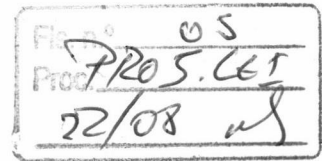 Fls. n.º 05
Proc. PROJ. LEI
22/08